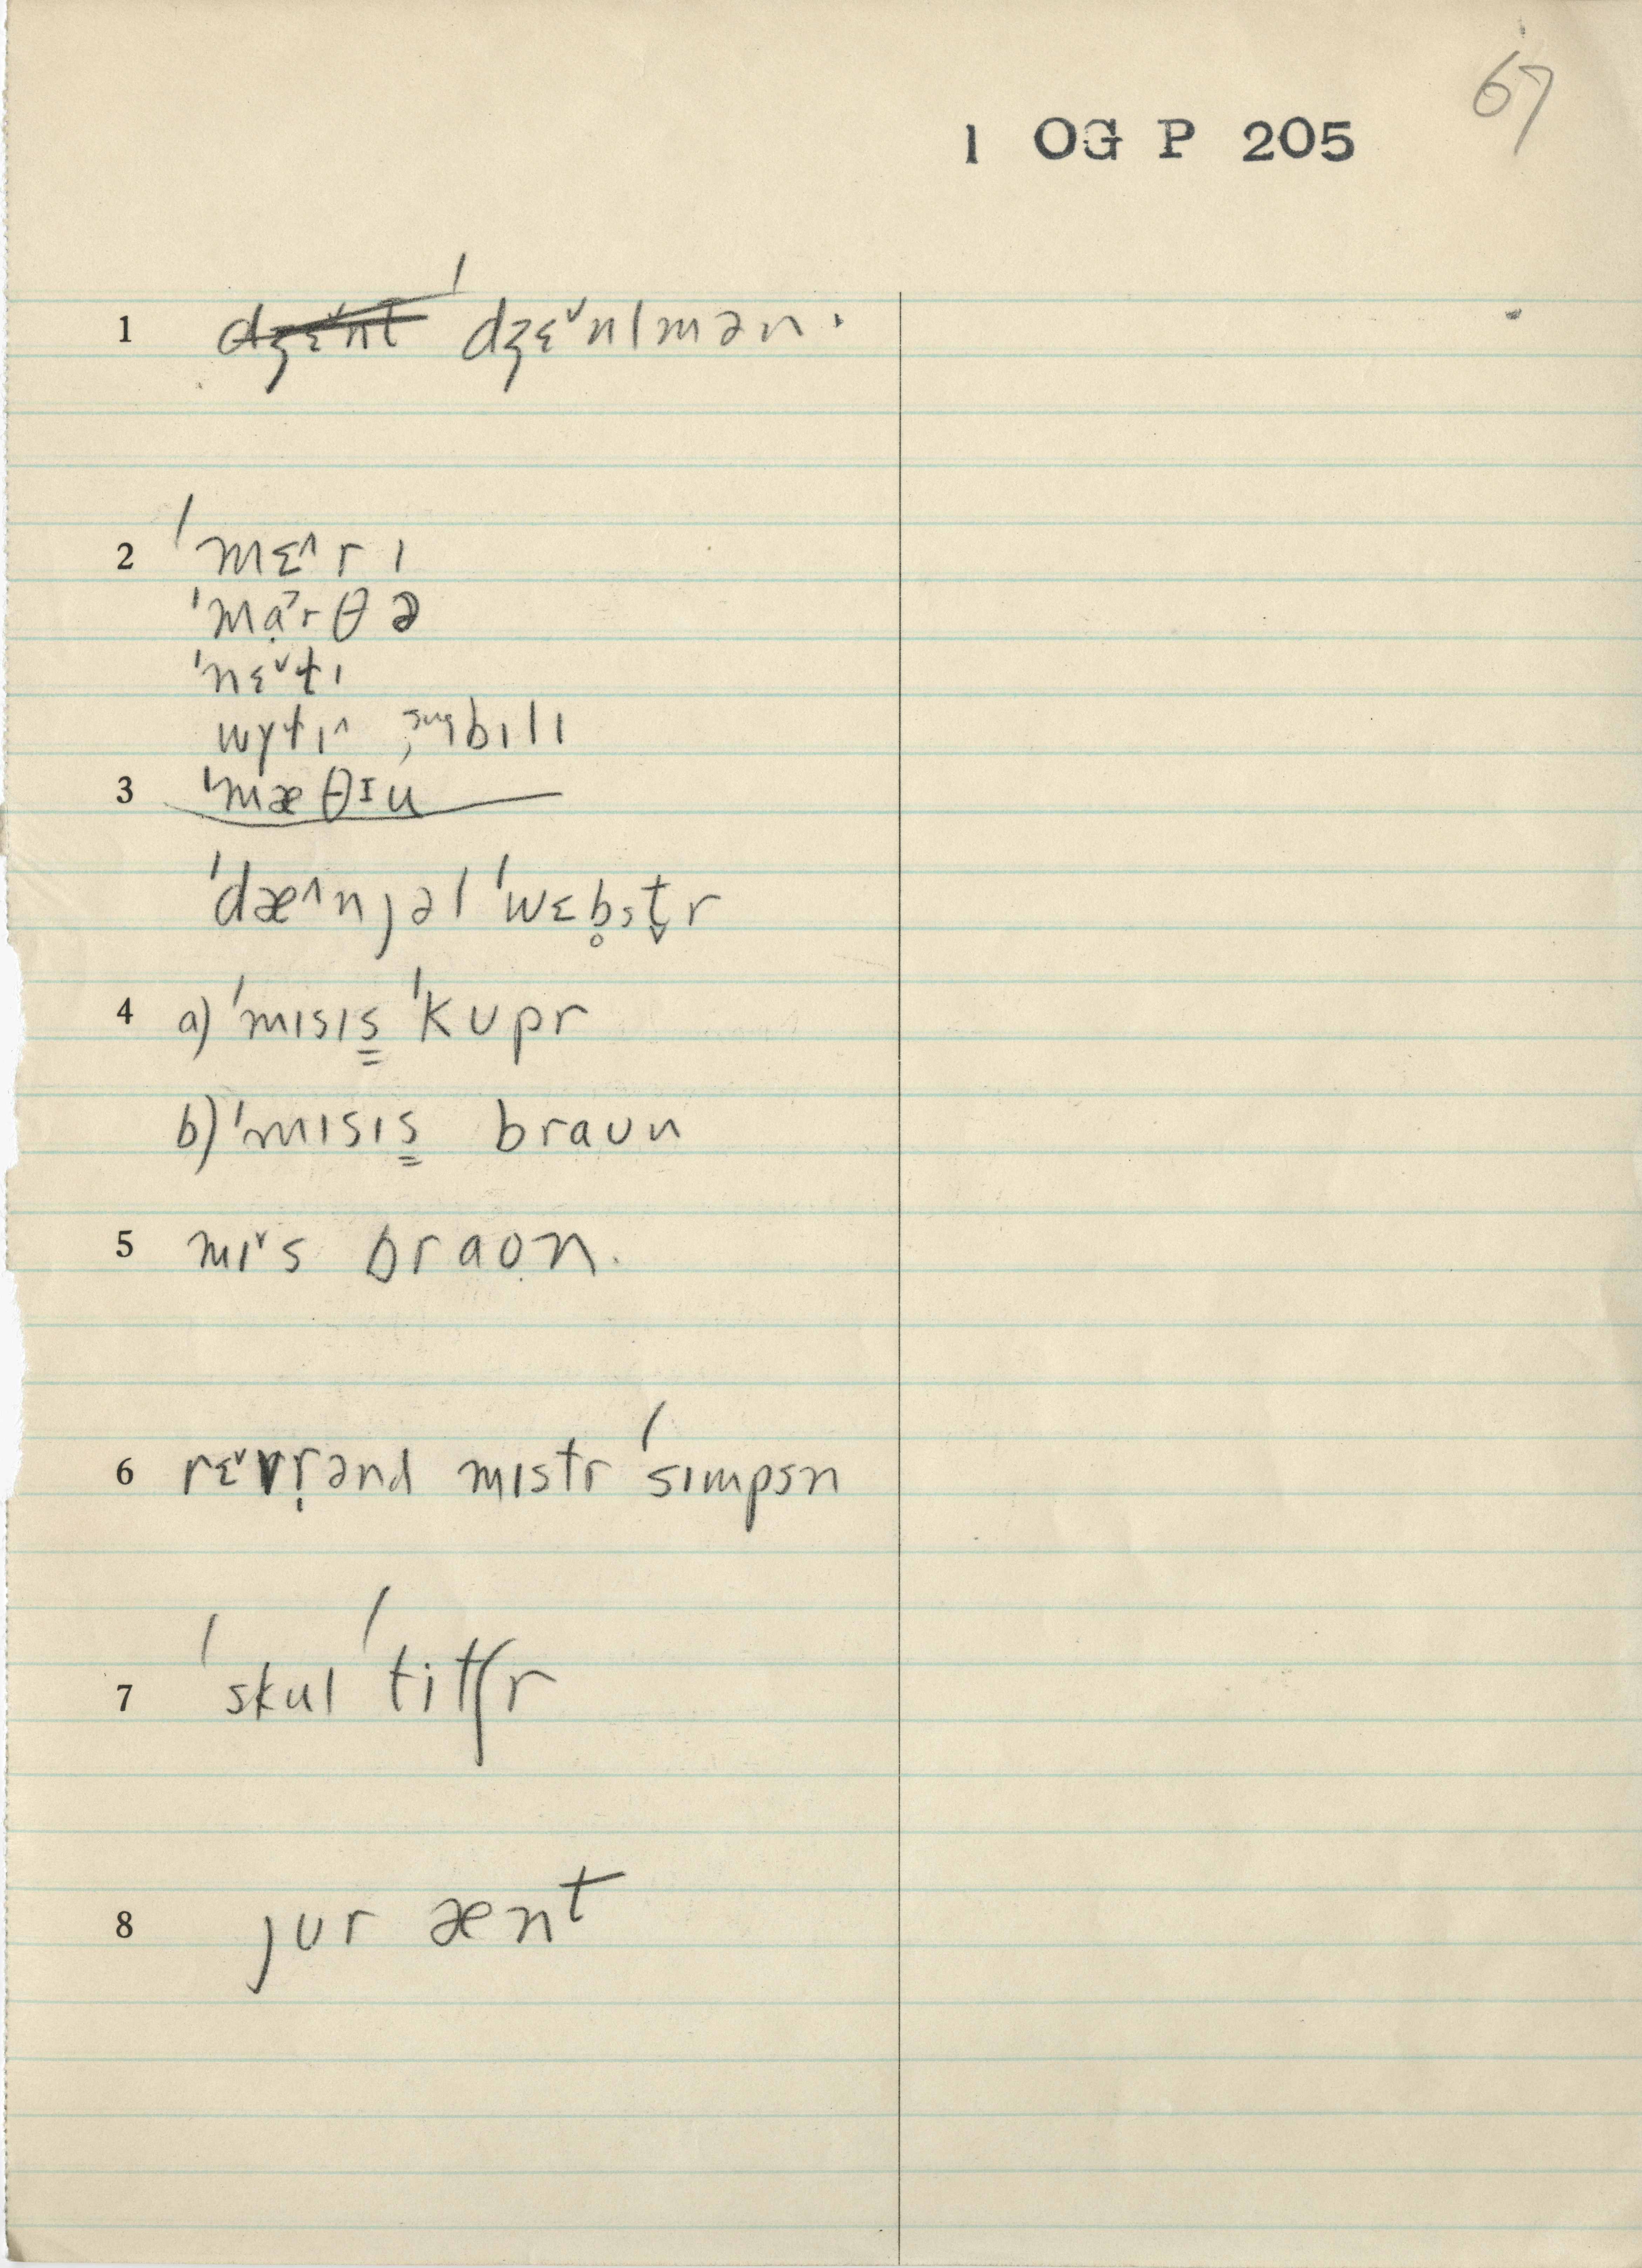 67
1 OG P 205
1 ˈdʒɛ˅nlmən.
2 ˈmɛ˄rɪ
ˈmạ˃rθə
ˈnɛ˅tɪ
bɪlɪ
3 ˈmæθɪu
ˈdæ˄njəl ˈwɛb̥st̬r
4 a) ˈmɪsɪs̳ ˈkupr
b) ˈmɪsɪs̳ braʊn
5 mɪ˅s braọn.
6 rɛ˅vṛənd mɪstr ˈsɪmpsn
7 ˈskul ˈtitʃr
8 jʊr ænt